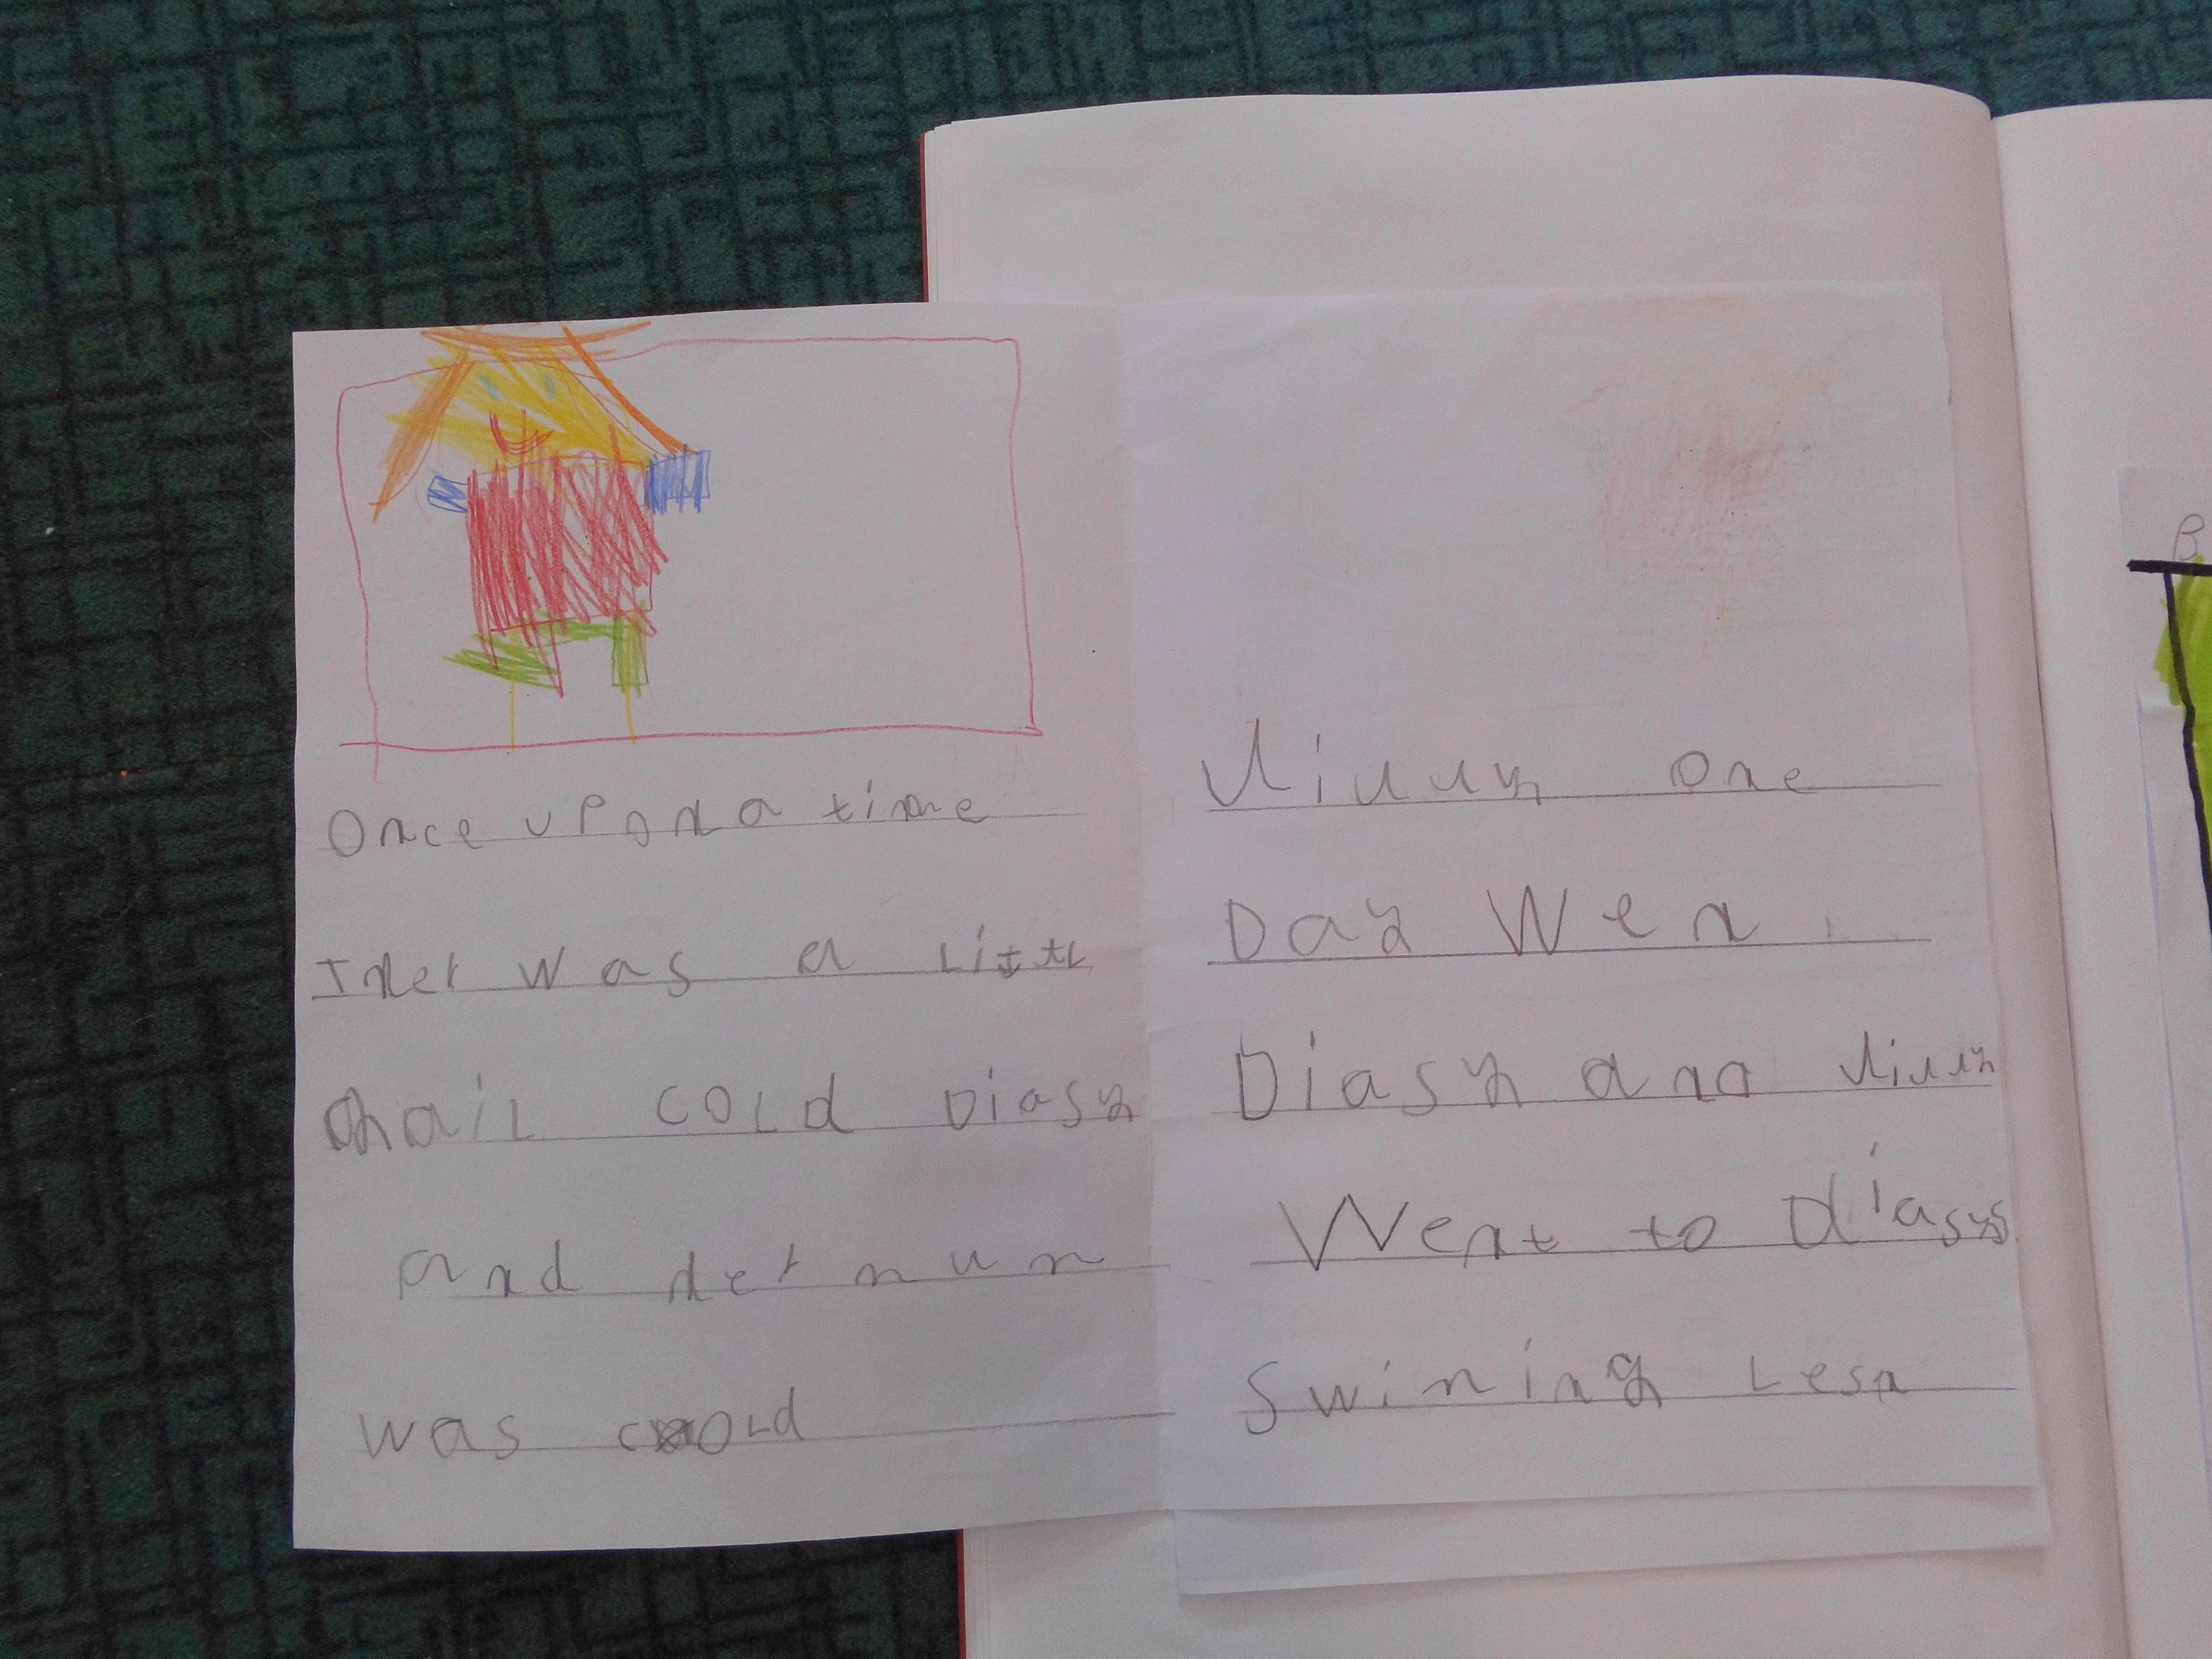 Once upon a time
Ther was a Littl
Chail cold Diasy
and her mum
was cold
Day Wen
Diasy and
Went to diasys
Swiming Lesn
one
B